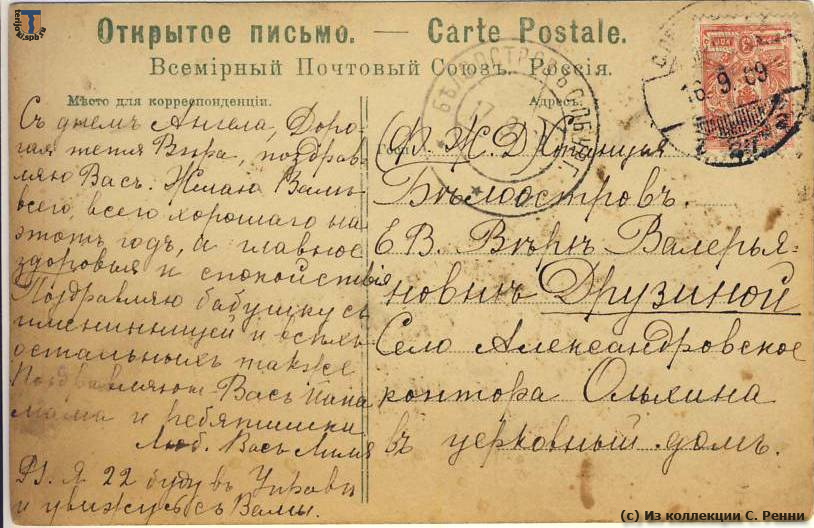 terijoki.spb.ru
Открытое письмо. — Carte Postale.
Всемірный Почтовый Союзъ. Россія.
Мѣсто для корреспонденціи.
Съ днемъ Ангела, Доро-
гая тетя Вѣра, поздрав-
ляю Васъ. Желаю Вамъ
всего, всего хорошаго на
этотъ годъ, а главное
здоровья и спокойствія
Поздравляю бабушку съ
имениницей и всѣхъ
остальныхъ также
Поздравляютъ Васъ Папа
мама и ребятишки
Люб. Васъ Лиля
PS. Я 22 буду въ
и увижусь съ Вами.
Адресъ.
Ф. Ж. Д. Станція
Бѣлоостровъ.
Е В. Вѣрѣ Валерья-
новнѣ Друзиной
Село Александровское
контора Ольхина
въ церковный домъ.
БѢЛООСТРОВЪ С.П.БУРГ.
17.9
18.9.09
(c) Из коллекции С. Ренни